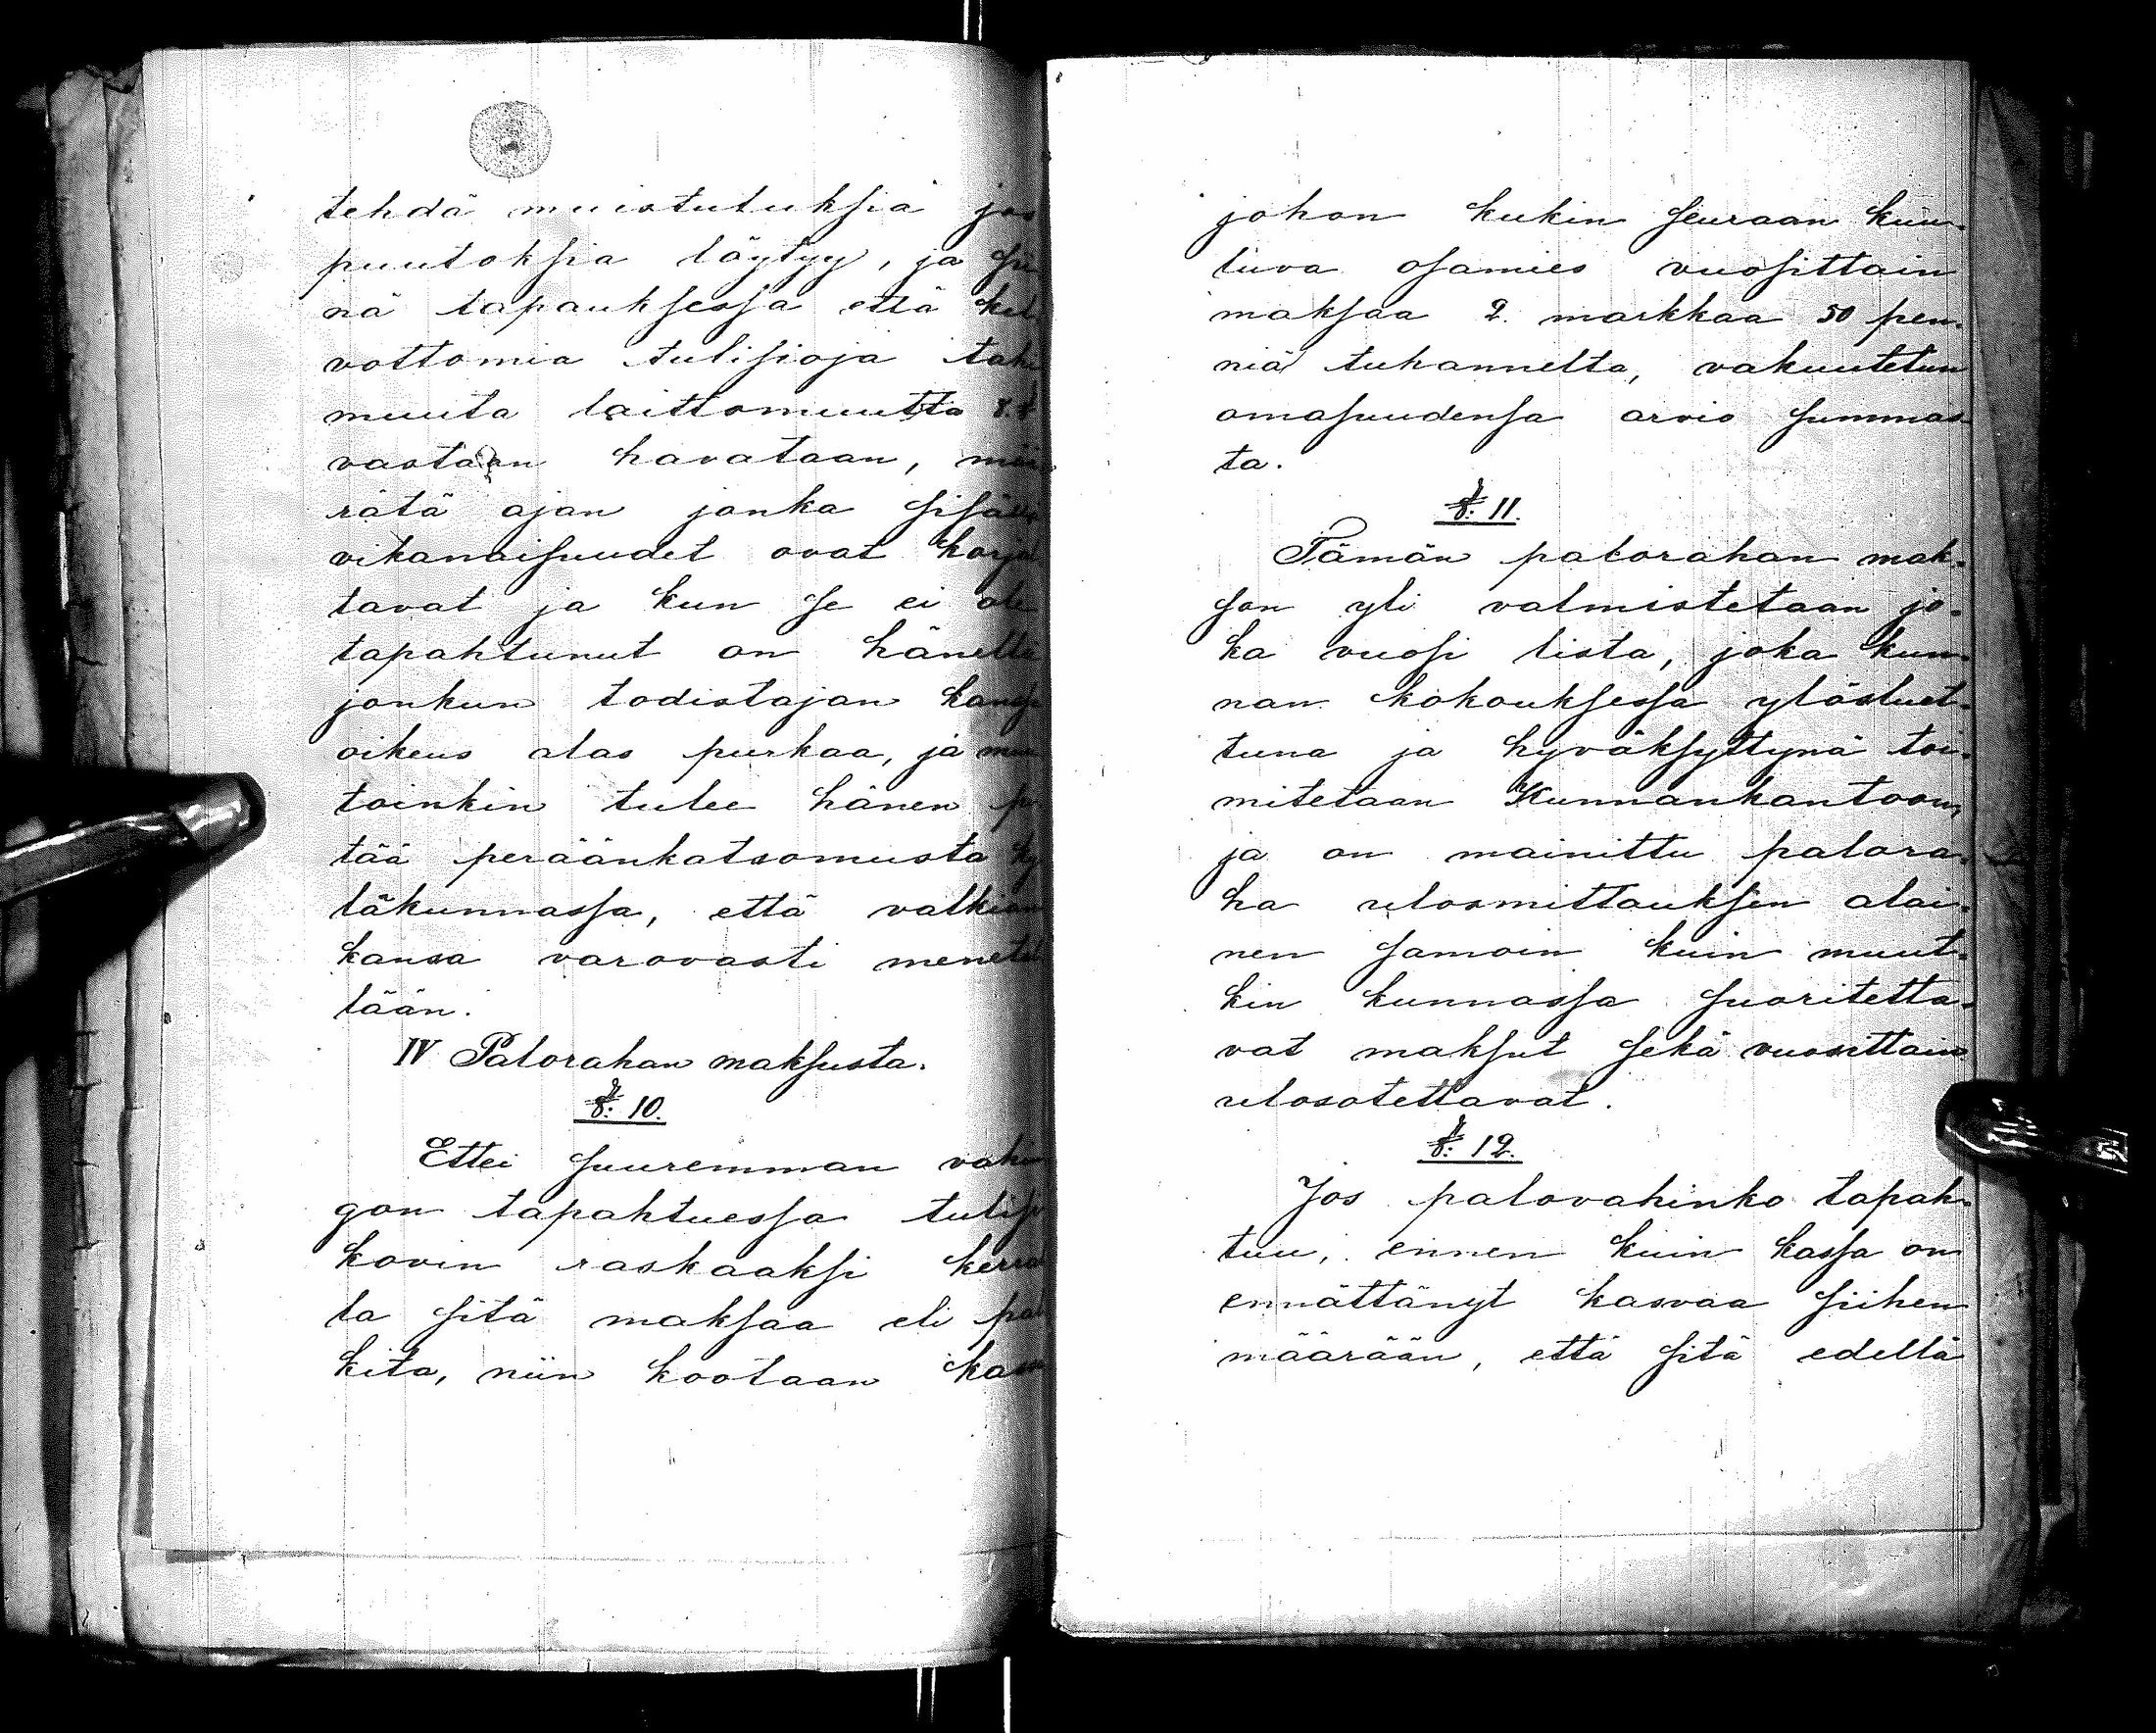 tehdä muistutuksia jos
puutoksia löytyy, ja sii
nä tapauksessa että kel
vottomia tulisioja tahi
muuta laittomuutta
vastaan havataan, mää
rätä ajan jonka sisällä
vikanaisuudet ovat korjat
tavat ja kun se ei ole
tapahtunut on hänellä
jonkun todistajan kanssa
oikeus alas purkaa, ja muu
toinkin tulee hänen pi
tää peräänkatsomusta ky
läkunnassa, että valkian
kansa varovasti menetel
lään.
IV Palorahan maksusta.
§. 10.
Ettei suuremman vahin
gon tapahtuessa tulisi
kovin raskaaksi kerral
la sitä maksaa eli pal
kita, niin kootaan kassa
johon kukin seuraan kuu-
luva osamies vuosittain
maksaa 2. markkaa 50 pen-
niä tuhannelta, vakuutetun
omasuudensa arvio summas-
ta.
§. 11.
Tämän palorahan mak-
son yli valmistetaan jo-
ka vuosi lista, joka kun-
nan kokouksessa ylösluet-
tuna ja hyväksyttynä toi-
mitetaan Kunnankantoon,
ja on mainittu palora-
ha ulosmittauksen alai-
nen samoin kuin muut-
kin kunnassa suoritetta-
vat maksut sekä vuosittain
ulosotettavat.
§. 12.
Jos palovahinko tapah-
tuu, ennen kuin kassa on
ennättänyt kasvaa siihen
määrään, että sitä edellä